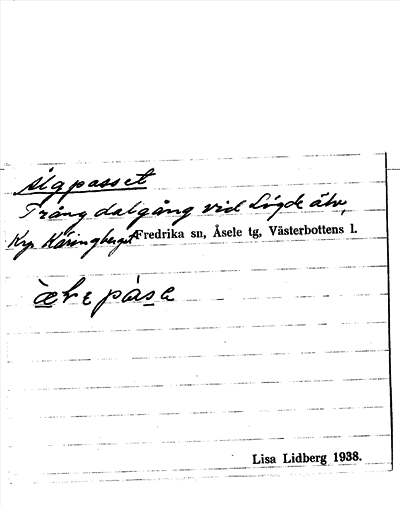 Älgpasset
Trång dalgång vid Lögde älv,
Krp. Käringberget Fredrika sn, Åsele tg, Västerbottens l.
Lisa Lidberg 1938.